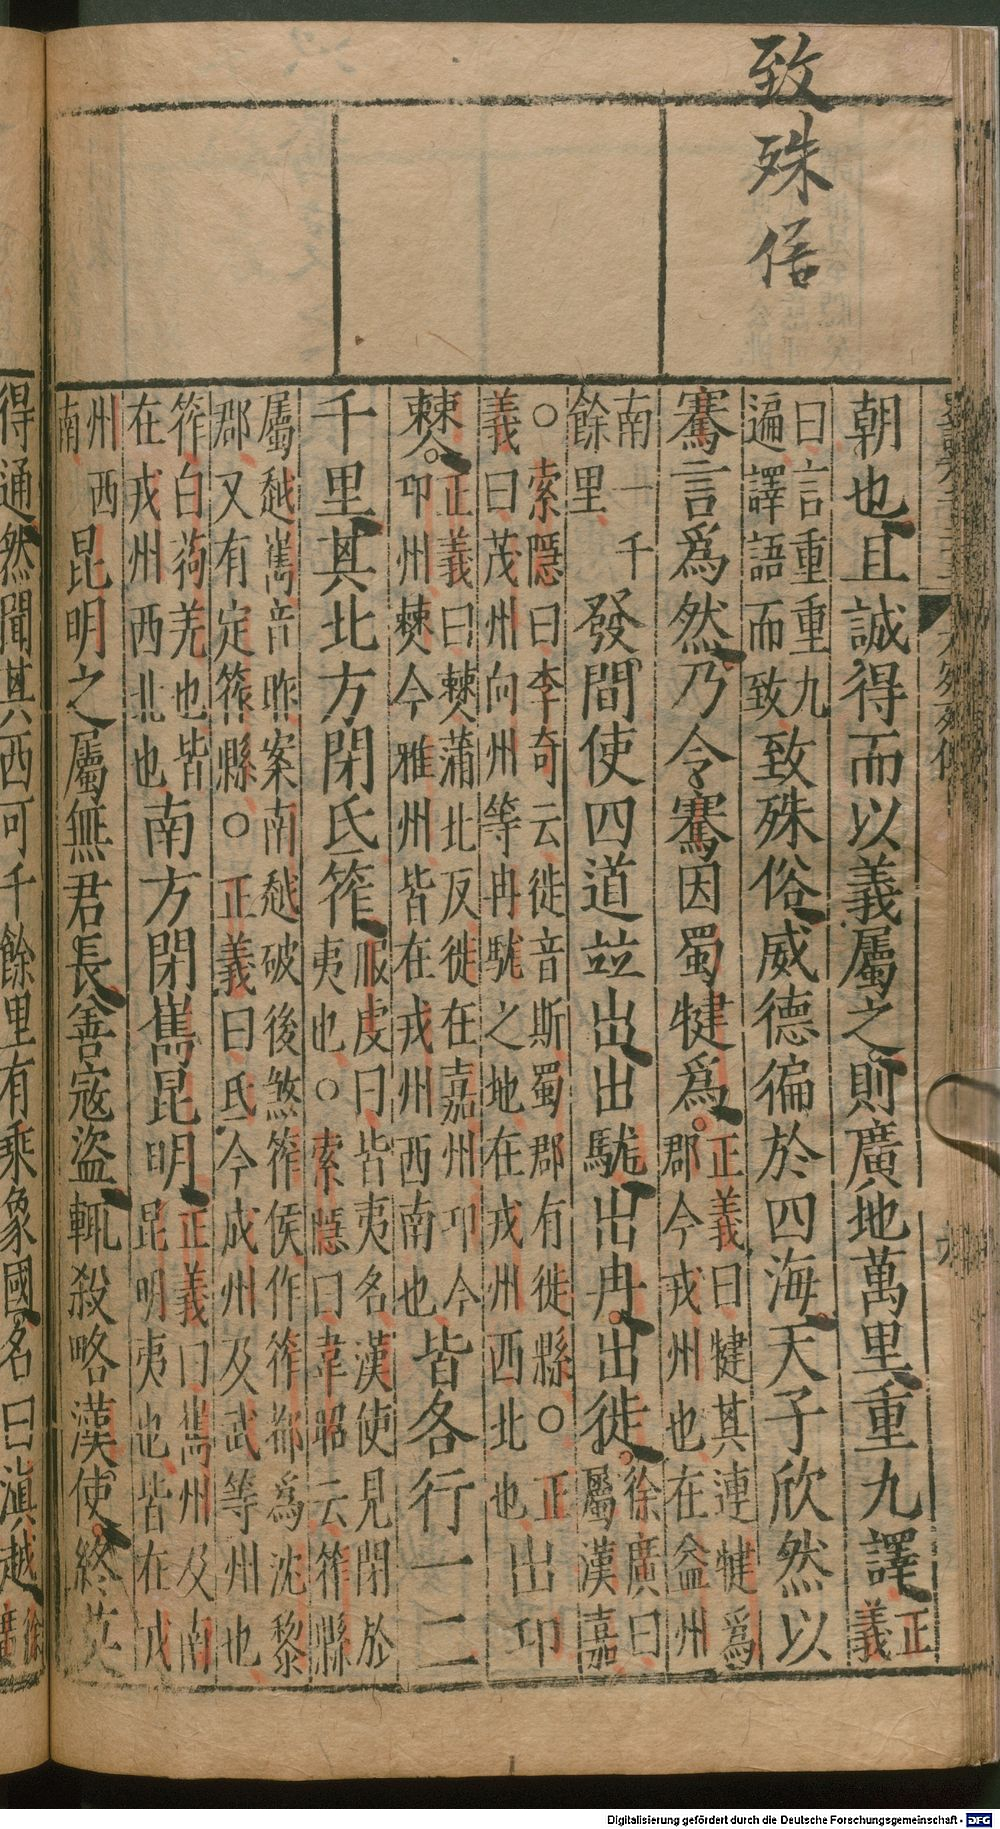 致殊俗
朝也且誠得而以義屬之則廣地萬里重九譯正義
曰言重重九遍譯語而致致殊俗威德徧於四海天子欣然以
騫言爲然乃令騫因蜀犍爲正義曰犍其連犍爲郡今戎州也在益州
南一千餘里發間使四道並出出駹出冉出徙徐廣曰屬漢嘉
○索隱曰李奇云徙音斯蜀郡有徙縣○正義曰茂州向州等冉駹之地在戎州西北也出邛
僰正義曰僰蒲北反徙在嘉州邛今邛州僰今雅州皆在戎州西南也皆各行一二
千里其北方閉氐筰服虔曰皆夷名漢使見閉於夷也○索隱曰韋昭云筰縣
屬越嶲音昨案南越破後煞筰侯作筰都爲沈黎郡又有定筰縣○正義曰氐今成州及武等州也
筰白茍羌也皆在戎州西北也南方閉嶲昆明正義曰嶲州及南昆明夷也皆在戎
州西南昆明之屬無君長善寇盜輒殺略漢使終莫
得通然聞其西可千餘里有乘象國名曰滇越徐廣